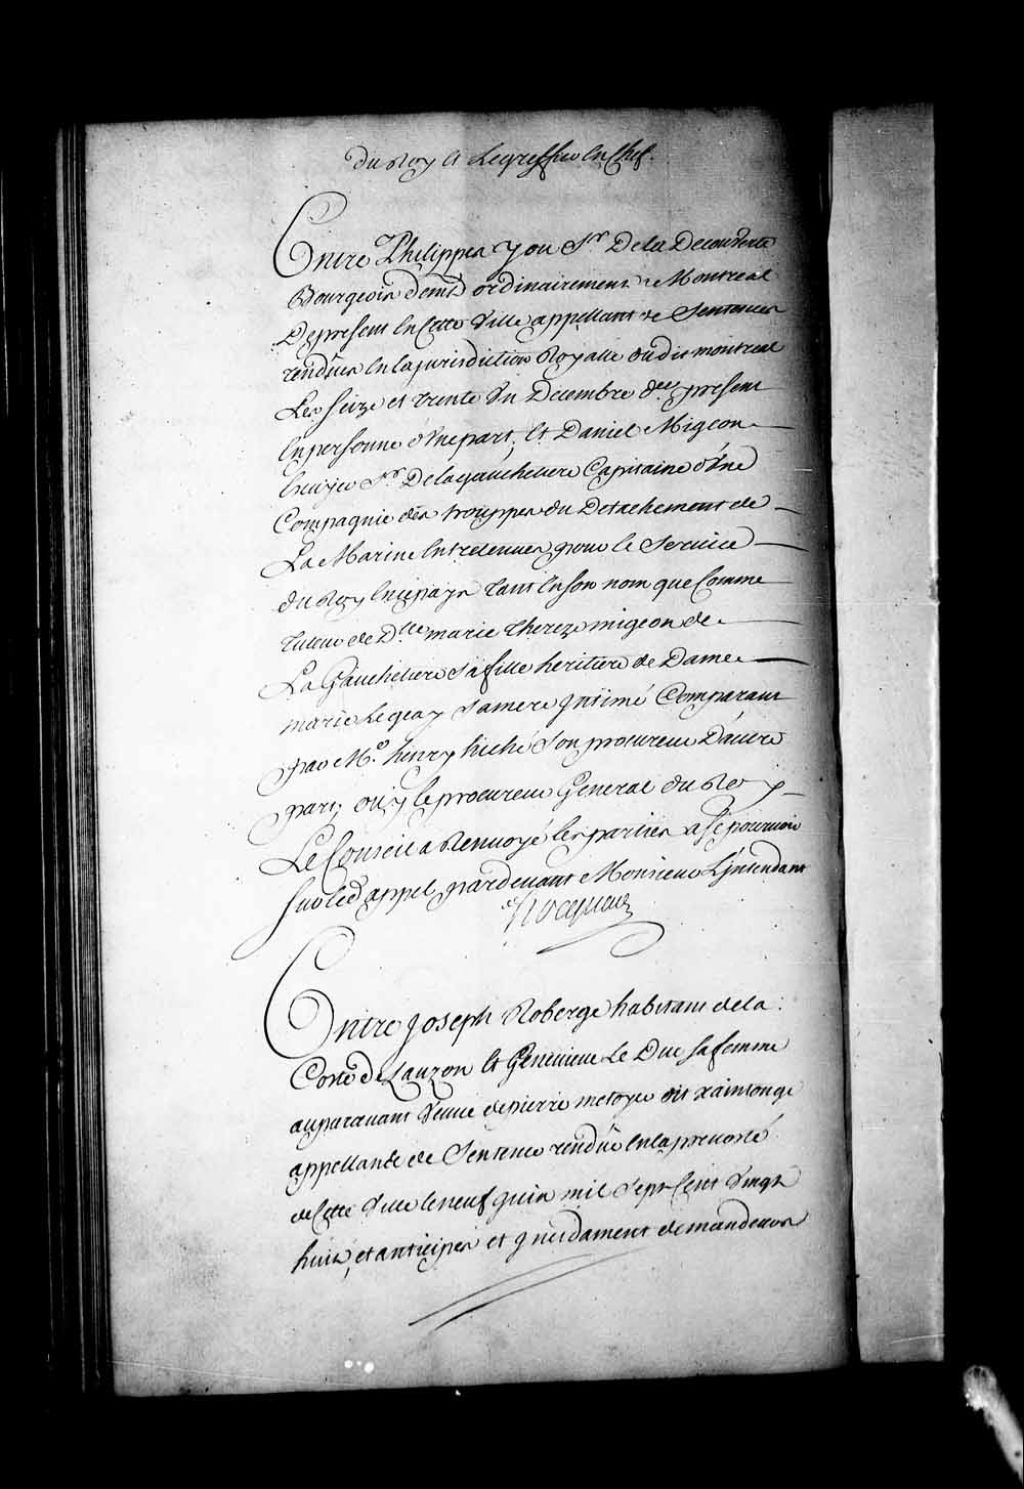 du Roy et Le greffier En Chef.
Entre Philippes You Sr De la Decouverte
Bourgeois demt ordinairement a Montreal
De present En Cette Ville appellant de Sentences
rendües En la jurisdiction Royalle dudit montreal
Les Seize et trente Un Decembre der present
En personne d'Une part, Et Daniel Migeon
Ecuyer Sr De la gauchetiere Capitaine d'Une
Compagnie des trouppes du Detachement de
La Marine Entretenues pour le Service
du Roy En ce pays tant En son nom que Comme
tuteur de Dlle marie Thereze migeon de
La Gauchetiere Sa fille heritiere de Dame
marie Le gay Sa mere Intimé Comparant
par Me henry hiché Son procureur D'autre
part; ouy le procureur General du Roy
Le Conseil a Renvoyé les parties a se pourvoir
sur led appel pardevant Monsieur L'intendant
Hocquart
Entre Joseph Roberge habitant de la
Coste de Lauzon Et Genevieve Le Duc sa femme
auparavant Veuve de pierre metoyer dit xaintonge
appellants de Sentence rendüe En la prevosté
de Cette Ville le neuf juin mil Sept Cent Vingt
huit, et anticipés et incidament demandeurs